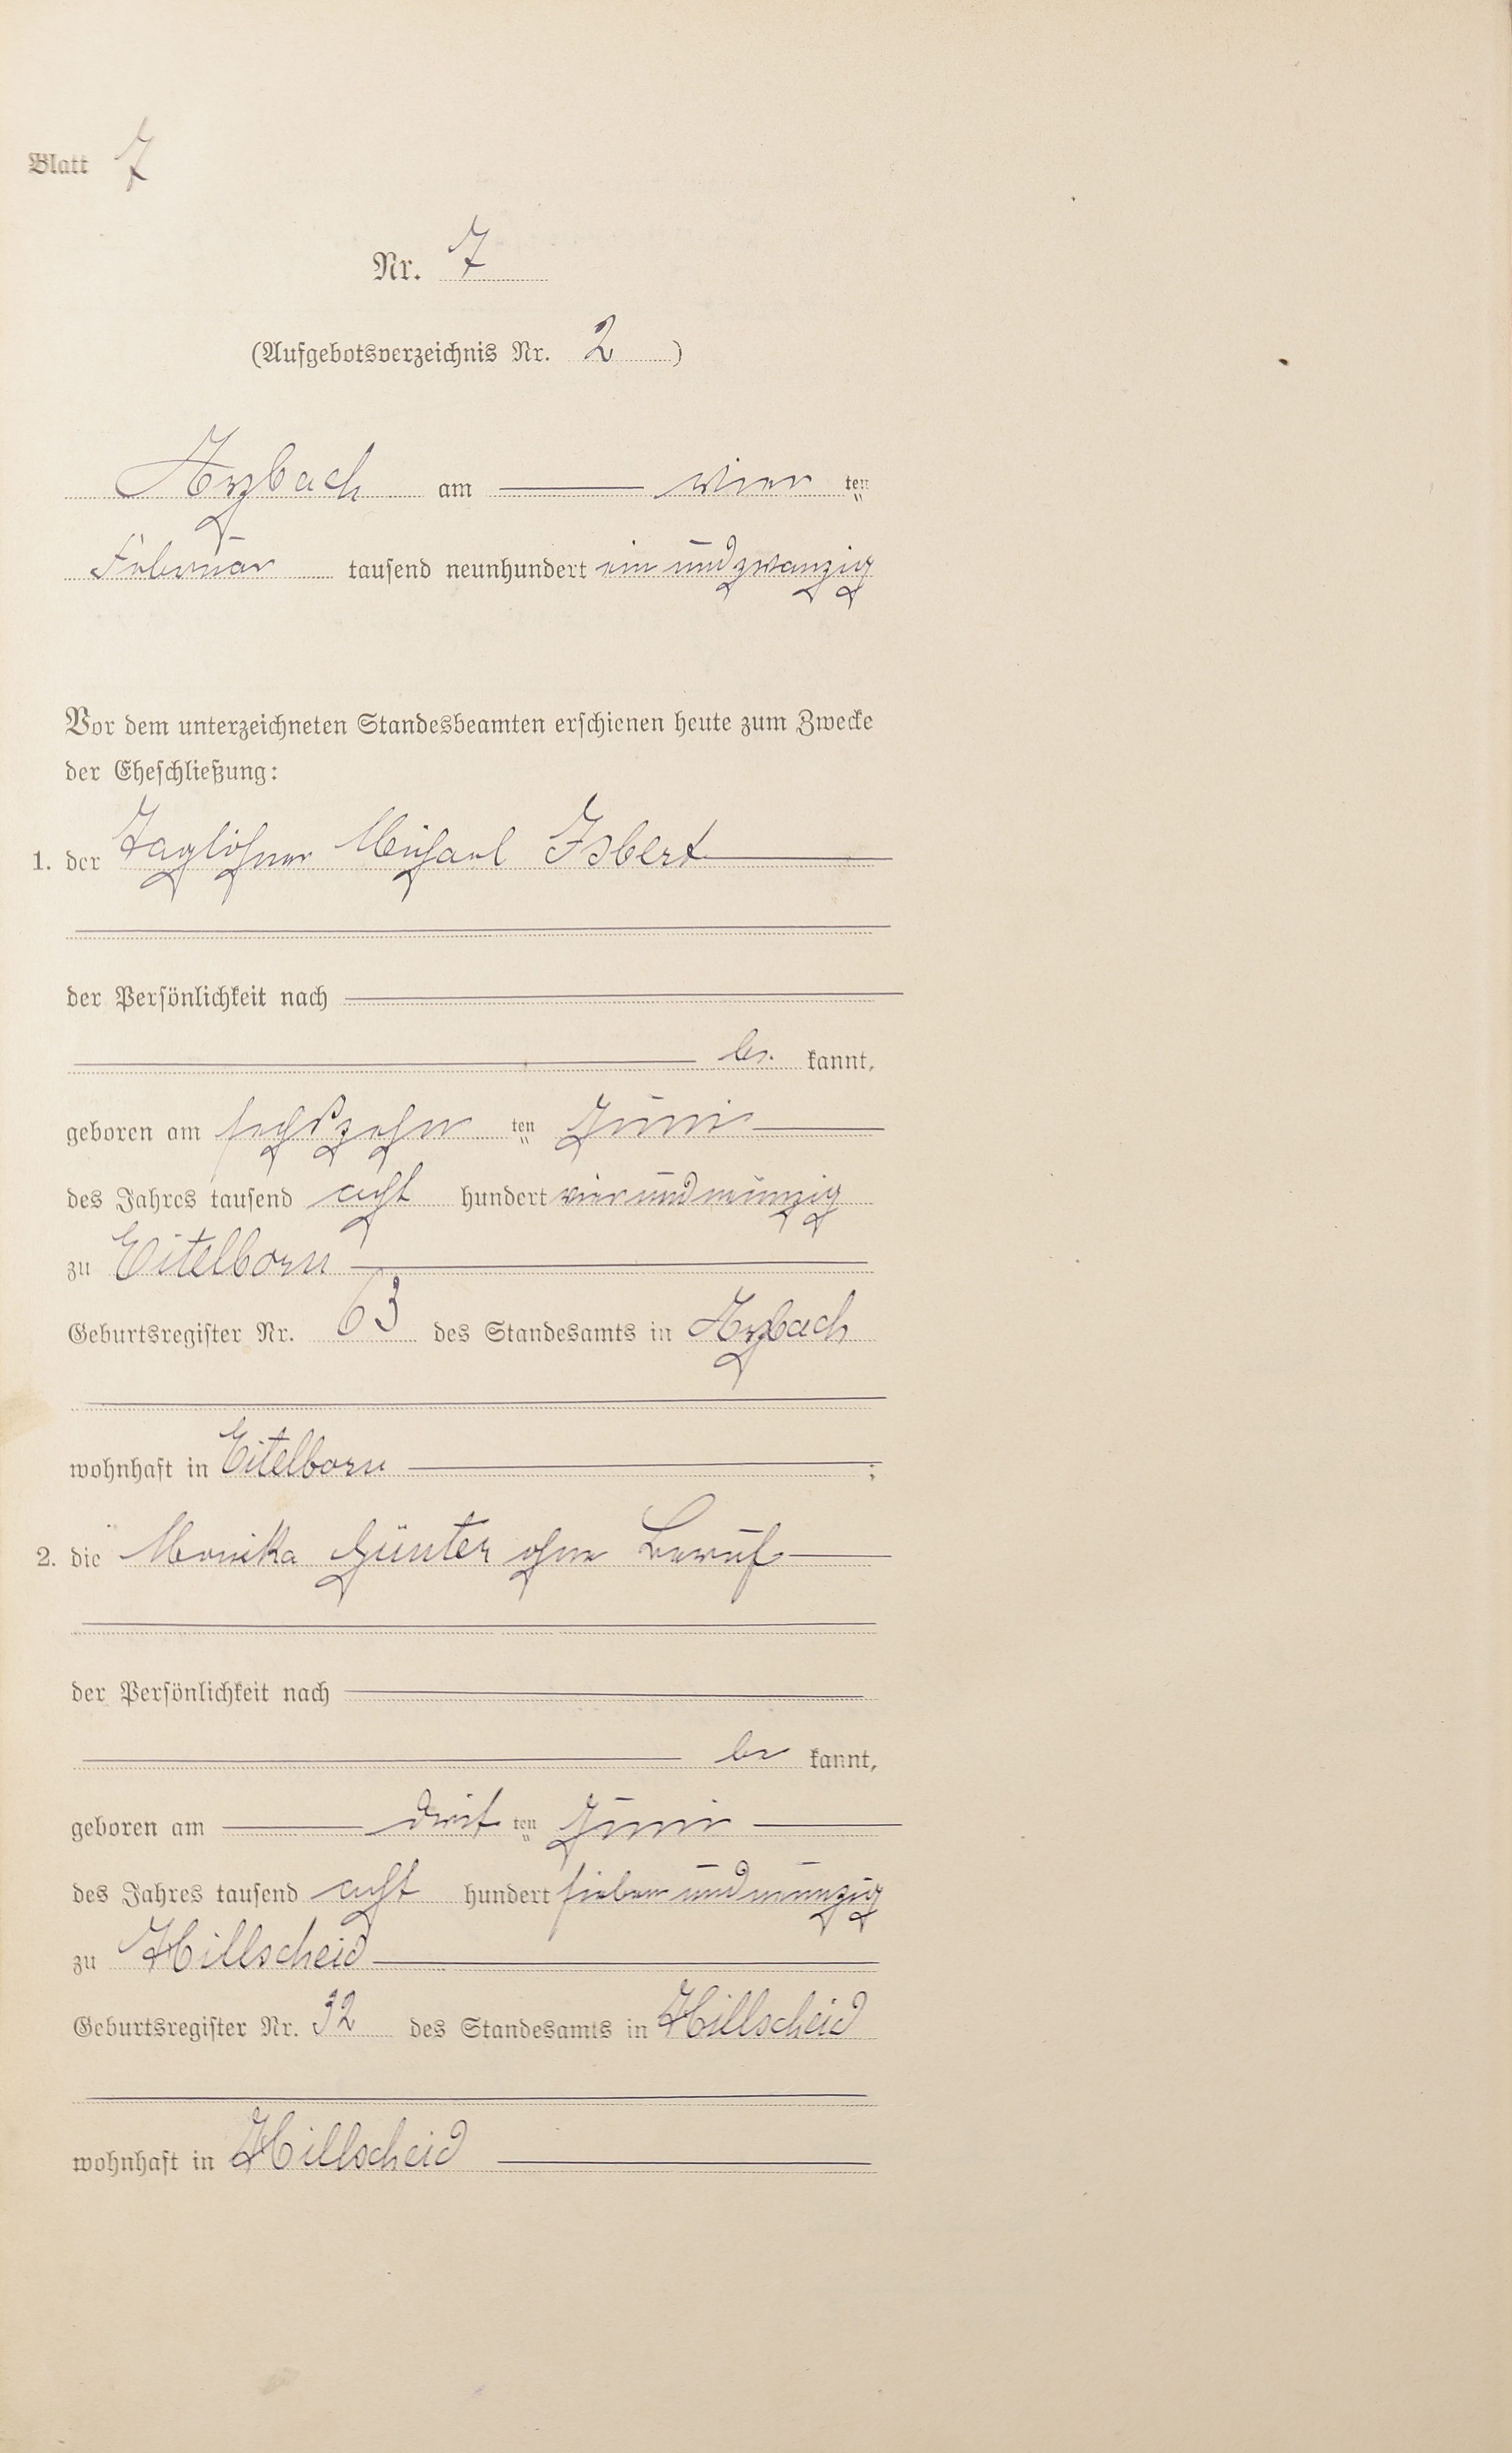 Blatt 7
Nr. 7
(Aufgebotsverzeichnis Nr. 2)
Arzbach am vier ten
Februar tausend neunhundert ein und zwanzig
Vor dem unterzeichneten Standesbeamten erschienen heute zum Zwecke
der Eheschließung:
1. der Taglöhner Michael Isbert
der Persönlichkeit nach
be kannt,
geboren am sechszehn ten Juni
des Jahres tausend acht hundert vier und neunzig
zu Eitelborn
Geburtsregister Nr. 63 des Standesamts in Arzbach
wohnhaft in Eitelborn ;
2. die Monika Günter ohne Beruf
der Persönlichkeit nach
be kannt,
geboren am drit ten Juni
des Jahres tausend acht hundert sieben und neunzig
zu Hillscheid
Geburtsregister Nr. 32 des Standesamts in Hillscheid
wohnhaft in Hillscheid